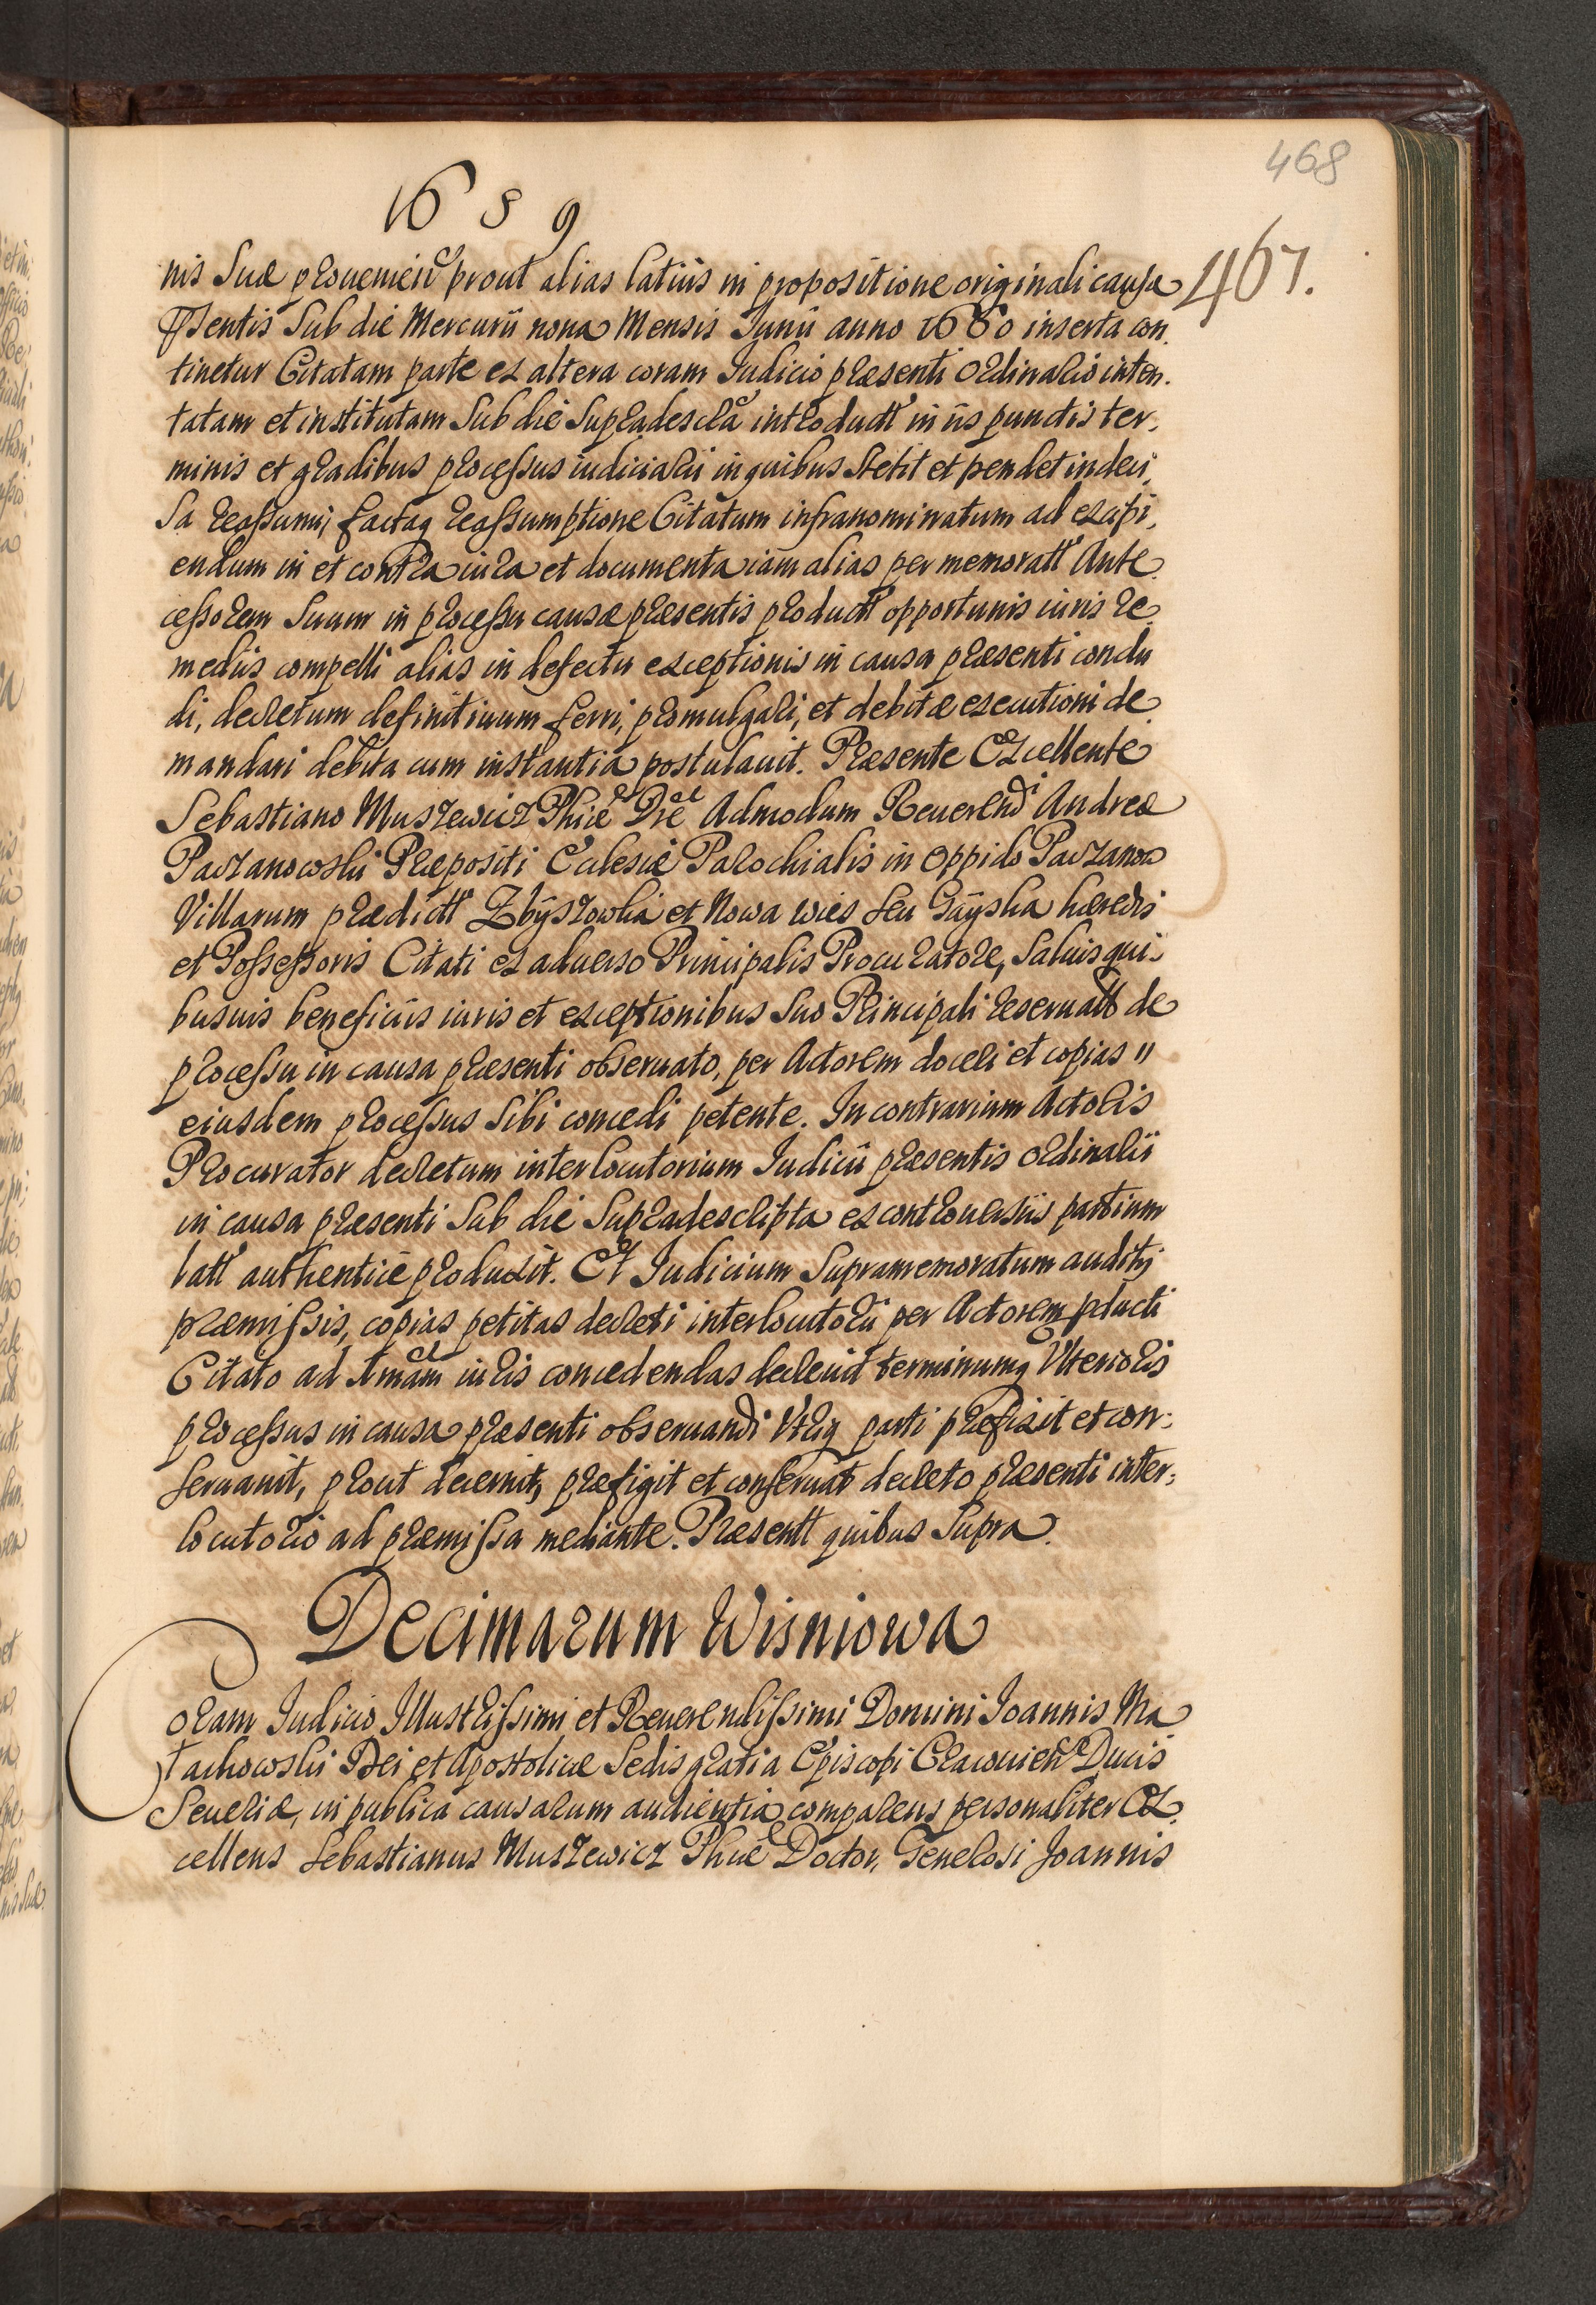 468
1689
467.
nis Suæ prouenien prout alias latius in propositione originali causæ
Psentis Sub die Mercurii nona Mensis Junii anno 1680 inserta con,
tinetur Citatam parte ex altera coram Iudicio præsenti Ordinario inten,
tatam et institutam Sub die Supradescra introductt in iis punctis ter,
minis et gradibus processus iudiciarii in quibus Stetit et pendet indeci,
Sa reassumi, factaq reassumptione Citatum infranominatum ad excipi,
endum in et contra iura et documenta iam alias per memoratt Ante,
cessorem Suum in processu causæ præsentis productt opportunis iuris re,
mediis compelli alias in defectu exceptionis in causa præsenti conclu
di, decretum definitiuum ferri, promulgari, et debitæ executioni de,
mandari debita cum instantia postulauit. Præsente Excellente
Sebastiano Muszewicz Phiæ Dre Admodum Reuerendi Andreæ
Paczanowski Præpositi Ecclesiæ Parochialis in Oppido Paczanow
Villarum prædictt Zbyszowka et Nowa wies seu Gaÿska hæredis
et Possessoris Citati ex aduerso Principalis Procuratore, Saluis qui,
busuis beneficiis iuris et exceptionibus Suo Principali reseruatt de
processu in causa præsenti obseruato, per Actorem doceri et copias "
eiusdem processus Sibi concedi petente. In contrarium Actoris
Procurator decretum interlocutorium Iudicii præsentis Ordinarii
in causa præsenti Sub die Supradescripta ex controuersiis partium
latt authenticè produxit. Et Iudicium Supramemoratum auditis
præmissis, copias petitas decreti interlocutorii per Actorem pducti
Citato ad Amam iuris concedendas decreuit terminumq Vlterioris
processus in causa præsenti obseruandi Vtriq parti præfixit et con,
seruauit, prout decernit, præfigit et conseruat decreto præsenti inter,
locutorio ad præmissa mediante. Præsentt quibus Supra.
Decimarum Wisniowa
Coram Iudicio Illustrissimi et Reuerendissimi Domini Ioannis Ma
łachowski Dei et Apostolicæ Sedis gratia Episcopi Cracouien Ducis
Seueriæ, in publica causarum audientia comparens personaliter Ex,
cellens Sebastianus Muszewicz Phiæ Doctor, Generosi Joannis